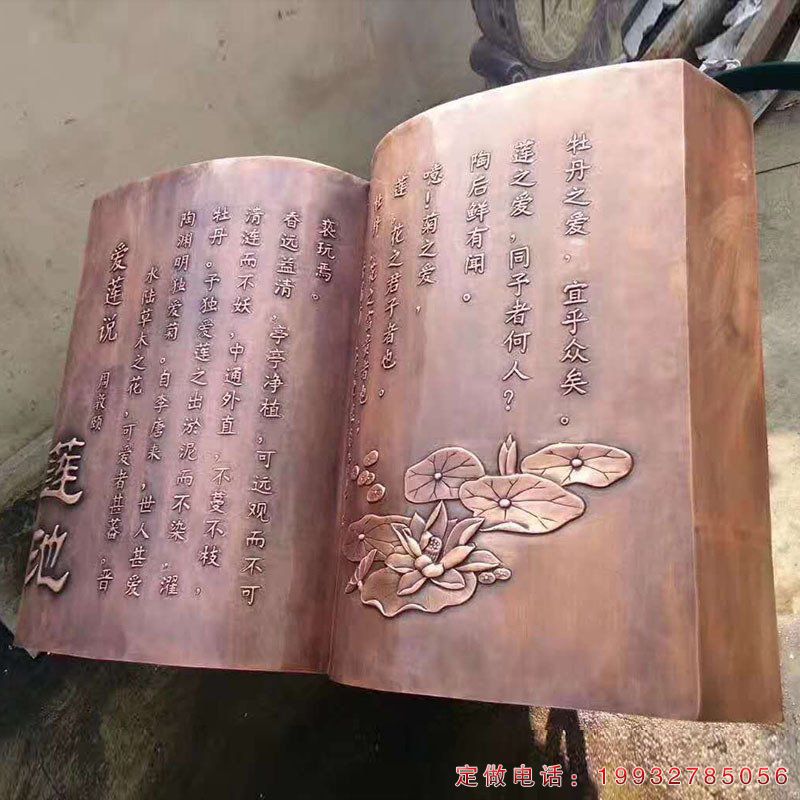 莲池
爱莲说 周敦颐
水陆草木之花,可爱者甚蕃。晋
陶渊明独爱菊。自李唐来,世人甚爱
牡丹。予独爱莲之出淤泥而不染,濯
清涟而不妖,中通外直,不蔓不枝,
香远益清,亭亭净植,可远观而不可
亵玩焉。
牡丹,花之富贵者也
莲,花之君子者也。
噫!菊之爱,
陶后鲜有闻。
莲之爱,同予者何人?
牡丹之爱,宜乎众矣。
定做电话:19932785056